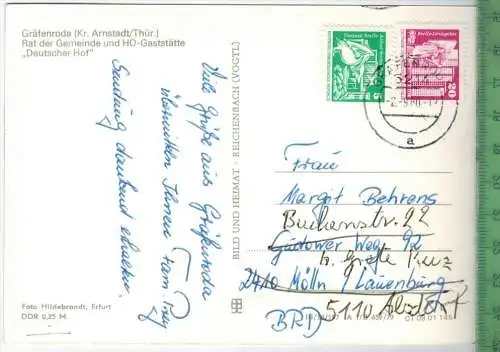 Gräfenroda (Kr. Arnstadt/Thür.)
Rat der Gemeinde und HO-Gaststätte
„Deutscher Hof"
Viele Grüße aus Gräfenroda
übermitteln Ihnen Fam.
Sendung dankend erhalten.
BILD UND HEIMAT · REICHENBACH (VOGTL)
Frau
Margit Behrens
Buchenstr. 22
Güdower Weg 92
b. Große
2410 Mölln / Lauenburg
5110 Alsdorf
BRD
Foto: Hildebrandt, Erfurt
DDR 0,25 M
01 08 01 145
a
20
5